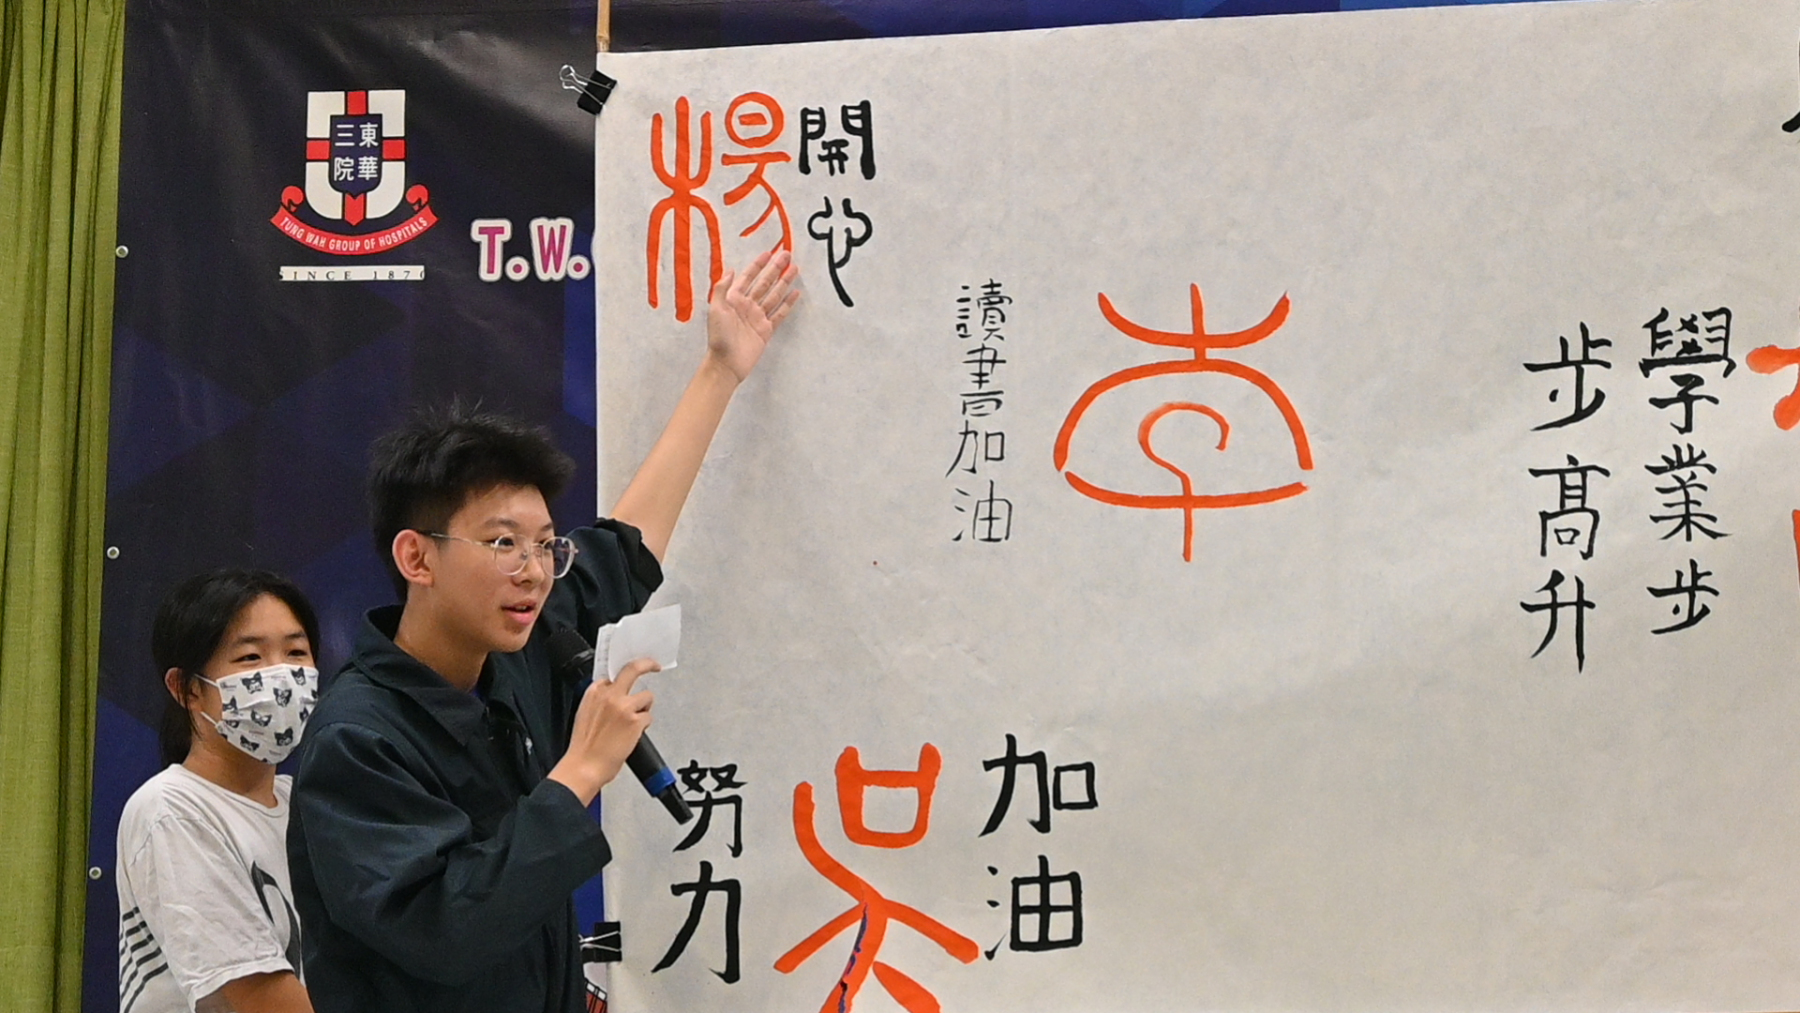 東華
三院
TUNG WAH GROUP OF HOSPITALS
SINCE 1870
T.W.
開心
楊
李
讀書加油
學業步
步高升
加油
吳
努力